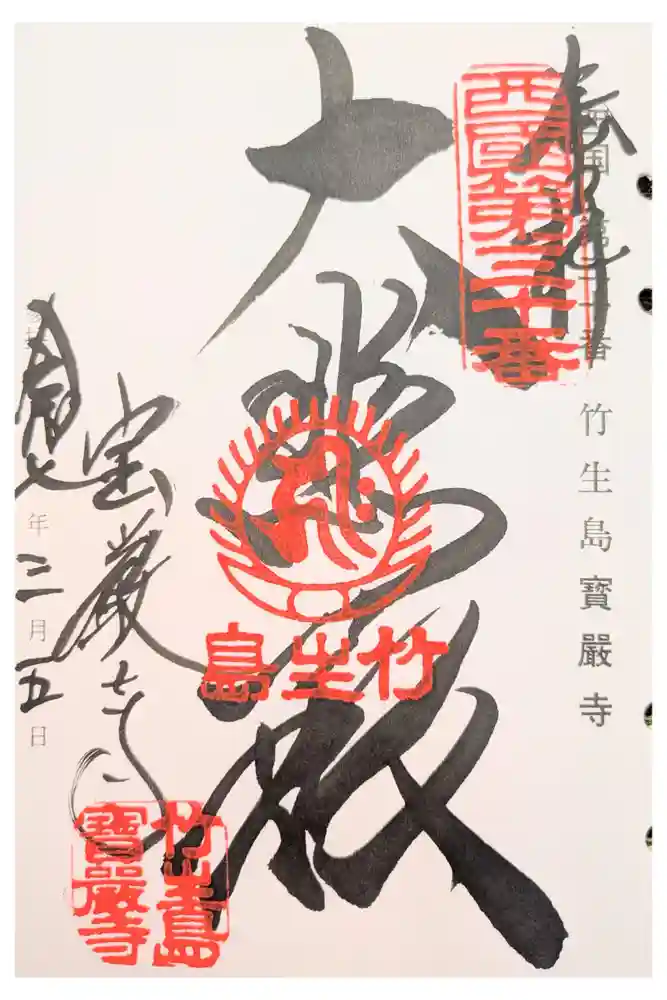 西国第三十番 竹生島寶嚴寺
奉拝
西國第三十番
大悲殿
竹生島
宝厳寺
竹生島
寶嚴寺
令和七年三月五日